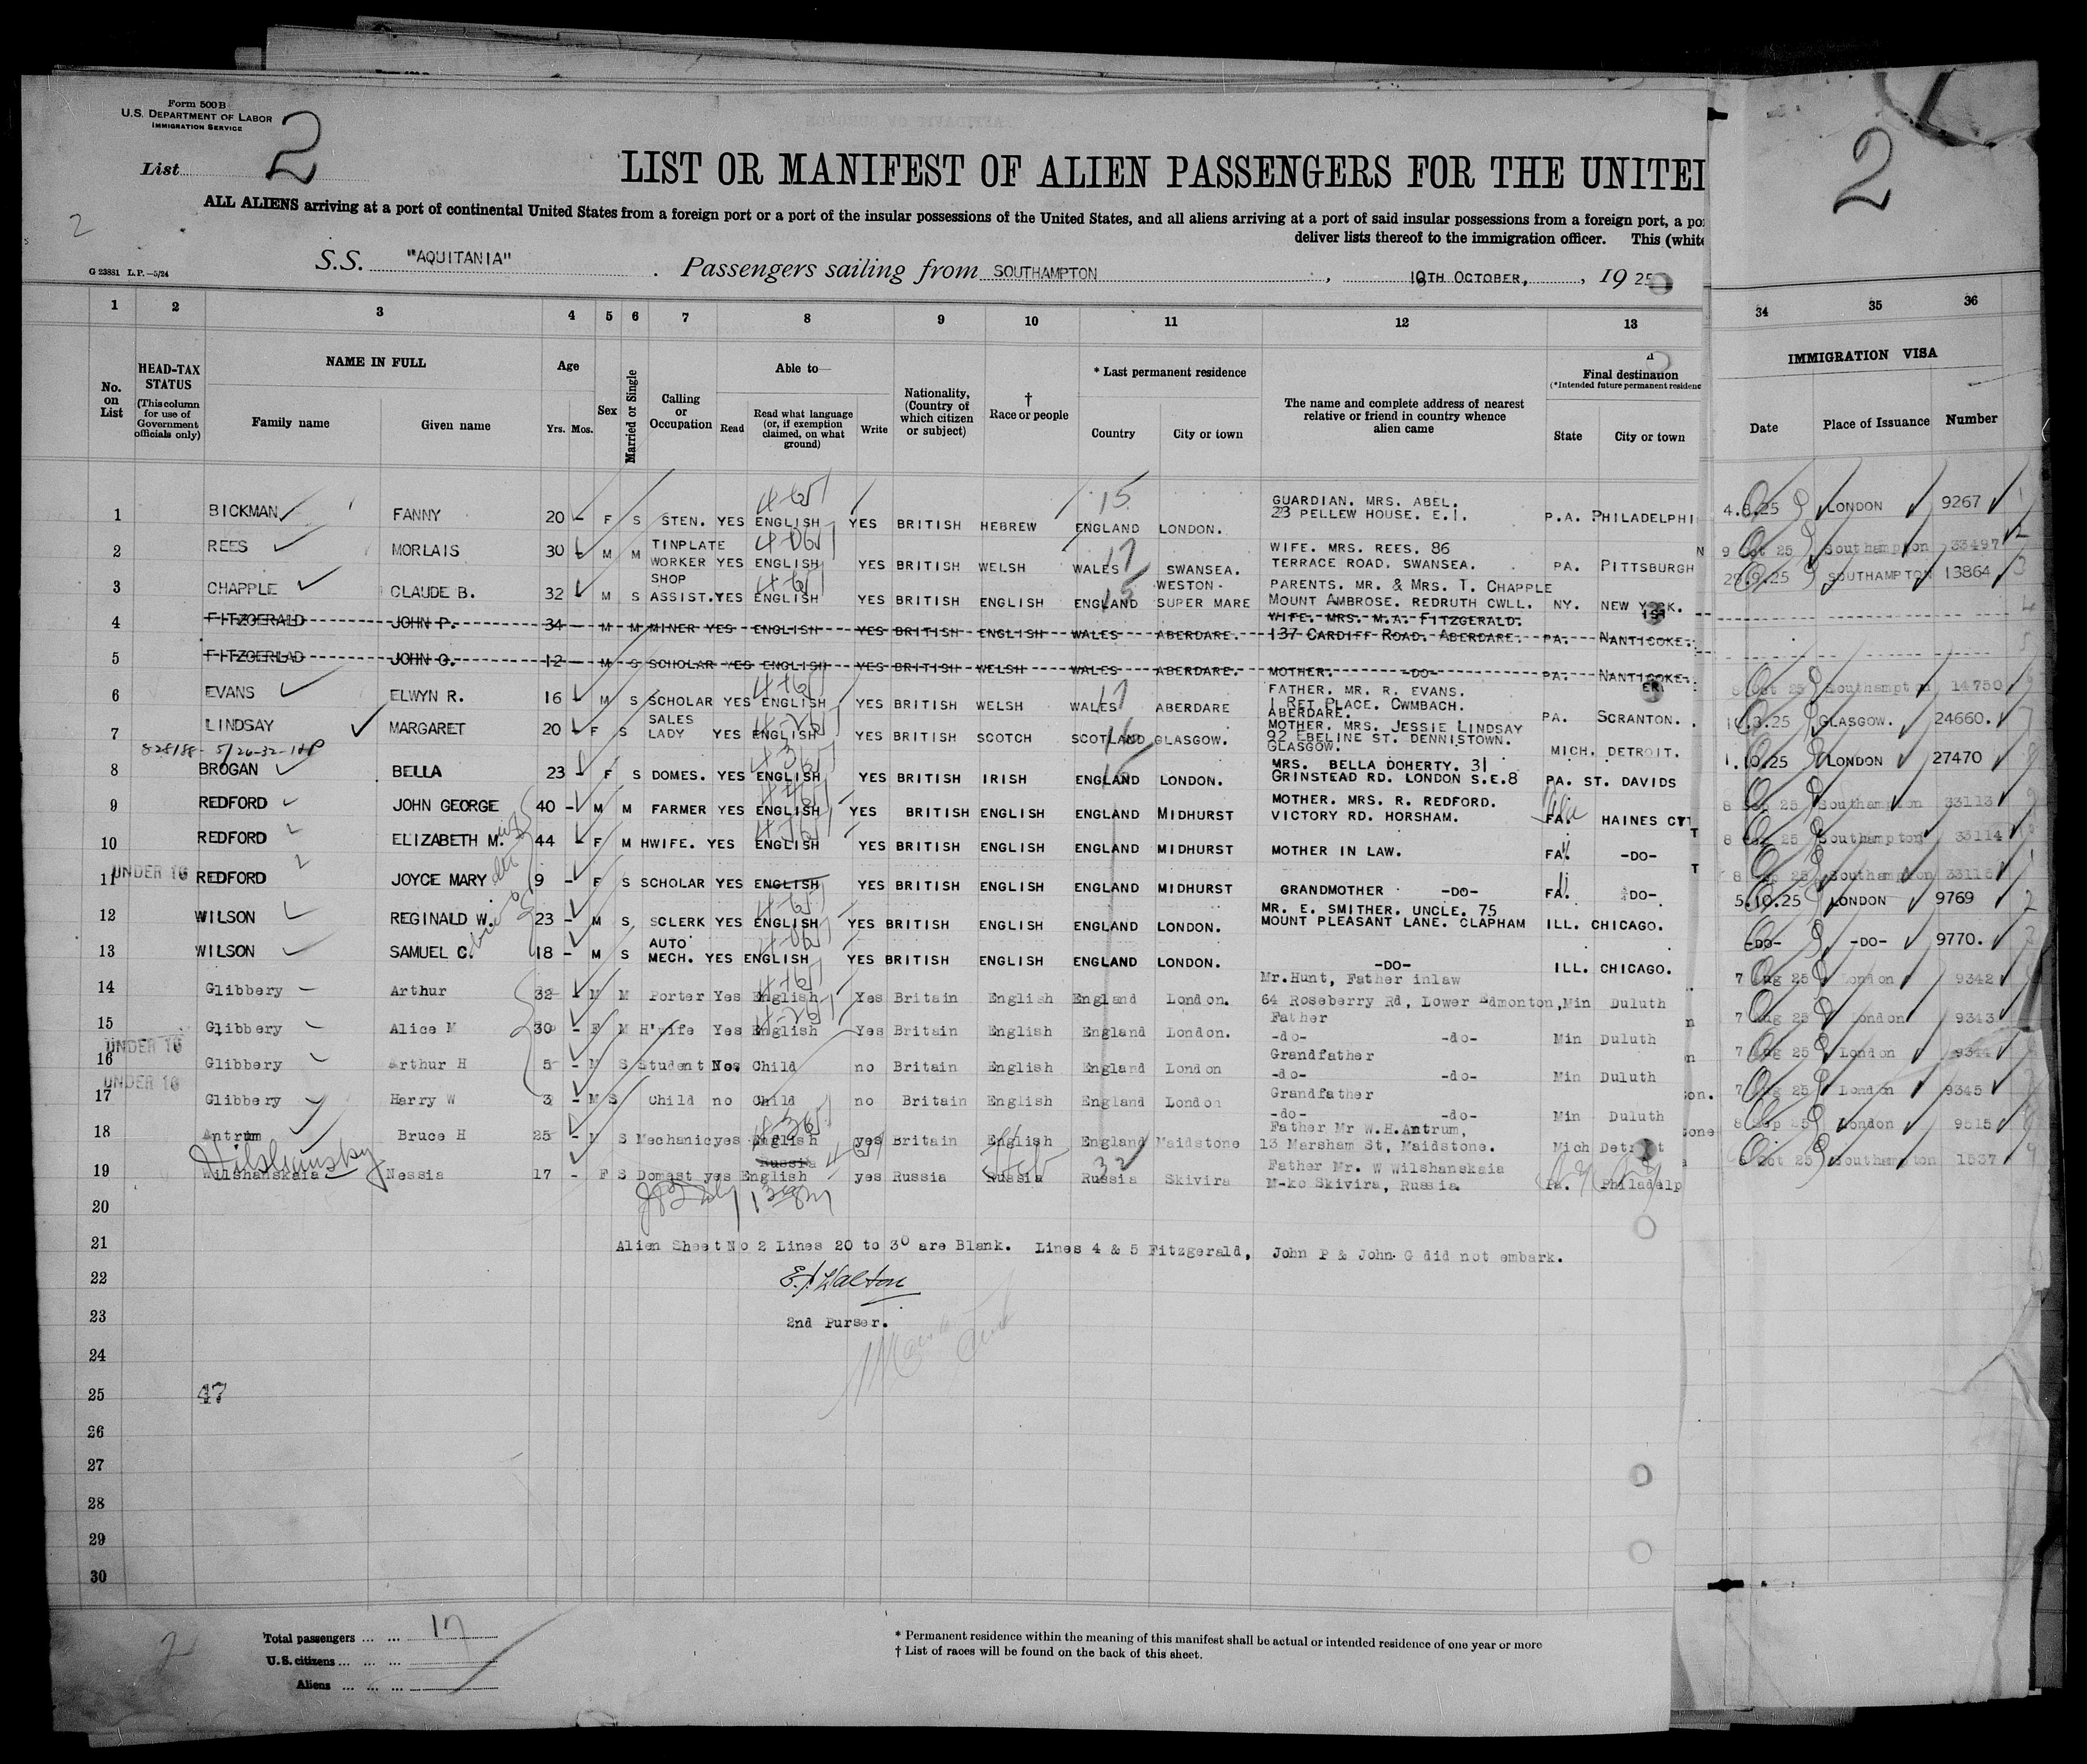 Form 500 B
U.S. DEPARTMENT OF LABOR
IMMIGRATION SERVICE
List 2
2
2
LIST OR MANIFEST OF ALIEN PASSENGERS FOR THE UNITE
ALL ALIENS arriving at a port of continental United States from a foreign port or a port of the insular possessions of the United States, and all aliens arriving at a port of said insular possessions from a foreign port, a po
deliver lists thereof to the immigration officer. This (white
G 23881 L.P.—5/24
S.S. "AQUITANIA" Passengers sailing from SOUTHAMPTON, 10TH OCTOBER, 1925
1 2 3 4 5 6 7 8 9 10 11 12 13 34 35 36
No. on List
HEAD-TAX STATUS (This column for use of Government officials only)
NAME IN FULL Family name Given name
Age Yrs. Mos.
Sex
Married or Single
Calling or Occupation
Able to— Read Read what language (or, if exemption claimed, on what ground) Write
Nationality, (Country of which citizen or subject)
† Race or people
* Last permanent residence Country City or town
The name and complete address of nearest relative or friend in country whence alien came
Final destination (*Intended future permanent residence State City or town
IMMIGRATION VISA Date Place of Issuance Number
1 BICKMAN FANNY 20 - F S STEN. YES ENGLISH YES BRITISH HEBREW ENGLAND LONDON. GUARDIAN. MRS. ABEL. 23 PELLEW HOUSE. E.1. P.A. PHILADELPHI 4.8.25 LONDON 9267
2 REES MORLAIS 30 M M TINPLATE WORKER YES ENGLISH YES BRITISH WELSH WALES SWANSEA. WIFE. MRS. REES. 86 TERRACE ROAD. SWANSEA. PA. PITTSBURGH 9 Oct 25 Southampton 33497
3 CHAPPLE CLAUDE B. 32 M S SHOP ASSIST. YES ENGLISH YES BRITISH ENGLISH ENGLAND WESTON-SUPER MARE PARENTS. MR. & MRS. T. CHAPPLE MOUNT AMBROSE. REDRUTH CWLL. NY. NEW YORK. 28.9.25 SOUTHAMPTON 13864
4 FITZGERALD JOHN P. 34 M M MINER YES ENGLISH YES BRITISH ENGLISH WALES ABERDARE. WIFE. MRS. M.A. FITZGERALD. 137 CARDIFF ROAD. ABERDARE. PA. NANTICOKE.
5 FITZGERLAD JOHN G. 12 M S SCHOLAR YES ENGLISH YES BRITISH WELSH WALES ABERDARE. MOTHER. -DO- PA. NANTICOKE.
6 EVANS ELWYN R. 16 M S SCHOLAR YES ENGLISH YES BRITISH WELSH WALES ABERDARE FATHER. MR. R. EVANS. 1 RET PLACE. CWMBACH. ABERDARE. PA. SCRANTON. 8 Oct 25 Southampton 14750
7 LINDSAY MARGARET 20 F S SALES LADY YES ENGLISH YES BRITISH SCOTCH SCOTLAND GLASGOW. MOTHER. MRS. JESSIE LINDSAY 92 EBELINE ST. DENNISTOWN. GLASGOW. MICH. DETROIT. GLASGOW. 24660.
8 BROGAN BELLA 23 - F S DOMES. YES ENGLISH YES BRITISH IRISH ENGLAND LONDON. MRS. BELLA DOHERTY. 31 GRINSTEAD RD. LONDON S.E.8 PA. ST. DAVIDS 1.10.25 LONDON 27470
9 REDFORD JOHN GEORGE 40 - M M FARMER YES ENGLISH YES BRITISH ENGLISH ENGLAND MIDHURST MOTHER. MRS. R. REDFORD. VICTORY RD. HORSHAM. FA. HAINES CT 8 Sep 25 Southampton 33113
10 REDFORD ELIZABETH M. 44 - F M HWIFE. YES ENGLISH YES BRITISH ENGLISH ENGLAND MIDHURST MOTHER IN LAW. FA. -DO- 8 Sep 25 Southampton 33114
UNDER 16
11 REDFORD JOYCE MARY 9 - F S SCHOLAR YES ENGLISH YES BRITISH ENGLISH ENGLAND MIDHURST GRANDMOTHER -DO- FA. -DO- 8 Sep 25 Southampton 33115
12 WILSON REGINALD W. 23 - M S SCLERK YES ENGLISH YES BRITISH ENGLISH ENGLAND LONDON. MR. E. SMITHER. UNCLE. 75 MOUNT PLEASANT LANE. CLAPHAM ILL. CHICAGO. 5.10.25 LONDON 9769
13 WILSON SAMUEL C. 18 - M S AUTO MECH. YES ENGLISH YES BRITISH ENGLISH ENGLAND LONDON. -DO- ILL. CHICAGO. -DO- -DO- 9770.
14 Glibbery Arthur 32 - M M Porter Yes English Yes Britain English England London. Mr.Hunt, Father inlaw 64 Roseberry Rd, Lower Edmonton, Min Duluth 7 Aug 25 London 9342
15 Glibbery Alice M 30 - F M H'wife Yes English Yes Britain English England London. Father -do- -do- Min Duluth 7 Aug 25 London 9343
UNDER 16
16 Glibbery Arthur H 5 - M S Student No Child no Britain English England London Grandfather -do- -do- Min Duluth 7 Aug 25 London 9344
UNDER 16
17 Glibbery Harry W 3 - M S Child no Child no Britain English England London Grandfather -do- -do- Min Duluth 7 Aug 25 London 9345
18 Antrum Bruce H 25 - M S Mechanic yes English yes Britain English England Maidstone Father Mr W.H.Antrum, 13 Marsham St, Maidstone. Mich Detroit 8 Sep 25 London 9515
19 Wilshanskaia Nessia 17 - F S Domest yes Russia English yes Russia Russia Russia Skivira Father Mr. W Wilshanskaia M-ko Skivira, Russia. Pa. Philadelp Oct 25 Southampton 1537
20
21 Alien Sheet No 2 Lines 20 to 30 are Blank. Lines 4 & 5 Fitzgerald, John P & John G did not embark.
22
23 2nd Purser.
24
25 47
26
27
28
29
30
Total passengers ... ... 17
U.S. citizens ... ... ...
Aliens ... ... ...
* Permanent residence within the meaning of this manifest shall be actual or intended residence of one year or more
† List of races will be found on the back of this sheet.
2